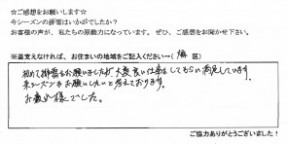 ☆ご感想をお願いします☆
今シーズンの排雪はいかがでしたか?
お客様の声が、私たちの原動力になっています。ぜひ、ご感想をお聞かせ下さい。
※差支えなければ、お住まいの地域をご記入ください→( 区)
初めて排雪をお願いしましたが、大変良い仕事をしてもらい満足しています。
来シーズンもお願いしたいと考えております。
お疲れ様でした。
ご協力ありがとうございました!